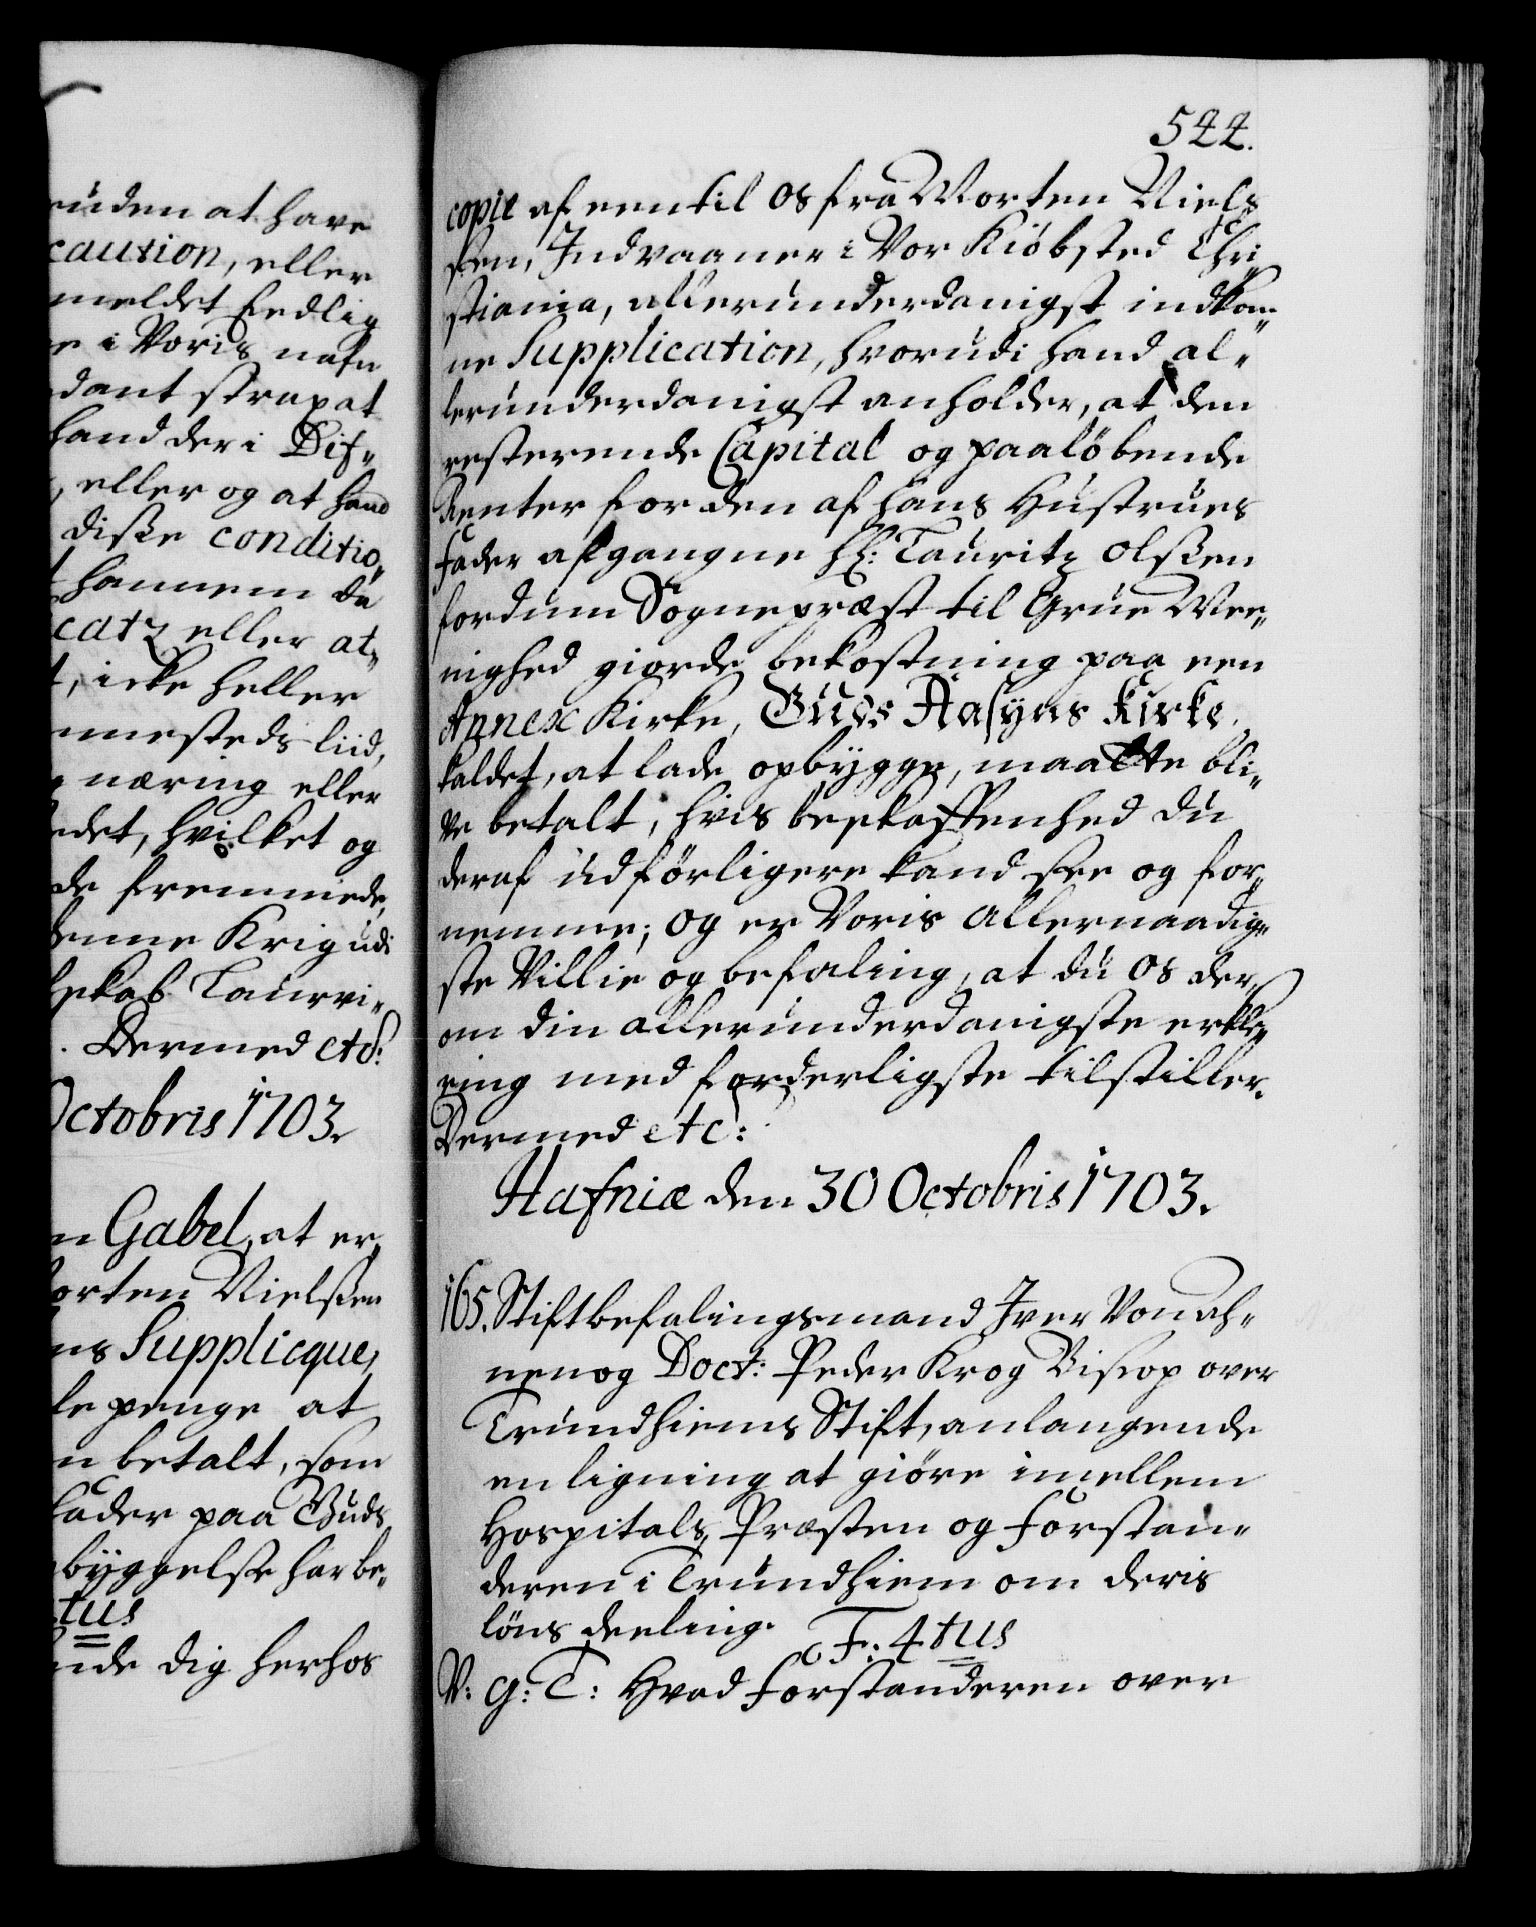 ruden at have
caution, eller
meldet Endelig
e i Voris nafn
dant strax at
hand der i Dis„
, eller og at hand
disse conditio„
hannem da
catz eller at„
t, icke heller
nnesteds liid,
næring eller
edet, hvilket og
de fremmede,
denne Krig udi
skab Laurvi„
. Dermed etc:
Octobris 1703.
n Gabel, at er„
orten Nielssen
ns Supplicque,
le penge at
n betalt, som
fader paa Guds
byggelse har be„
tus
nde dig herhos
544.
copie af een til os fra Morten Niels„
sen, Indvaaner i Vor Kiöbsted Chri„
stiania, allerunderdanigst indkom„
ne Supplication, hvorudi hand al„
lerunderdanigst anholder, at den
resterende Capital og paalöbende
Renter for den af hans Hustrues
fader afgangne Hr: Lauritz Olssen
fordum Sognepræst til Grue Mee„
nighed giorde bekostning paa een
Annex Kirke, Guds Aasyns Kirke
kaldet, at lade opbygge, maatte bli„
ve betalt, hvis beskaffenhed du
deraf udförligere kand see og for„
nemme; og er Voris allernaadig„
ste Villie og befaling, at du os der„
om din allerunderdanigste erklæ„
ring med forderligste tilstiller.
Dermed etc:
Hafniæ den 30 Octobris 1703.
165. Stiftbefalingsmand Iver Von Ah„
nen og Doct: Peder Krog Bisop over
Trundhiems Stift, anlangende
en ligning at giöre imellem
Hospitals Præsten og Forstan„
deren i Trundhiem om deris
löns deeling. F: 4tus
V: G: T: Hvad Forstanderen over